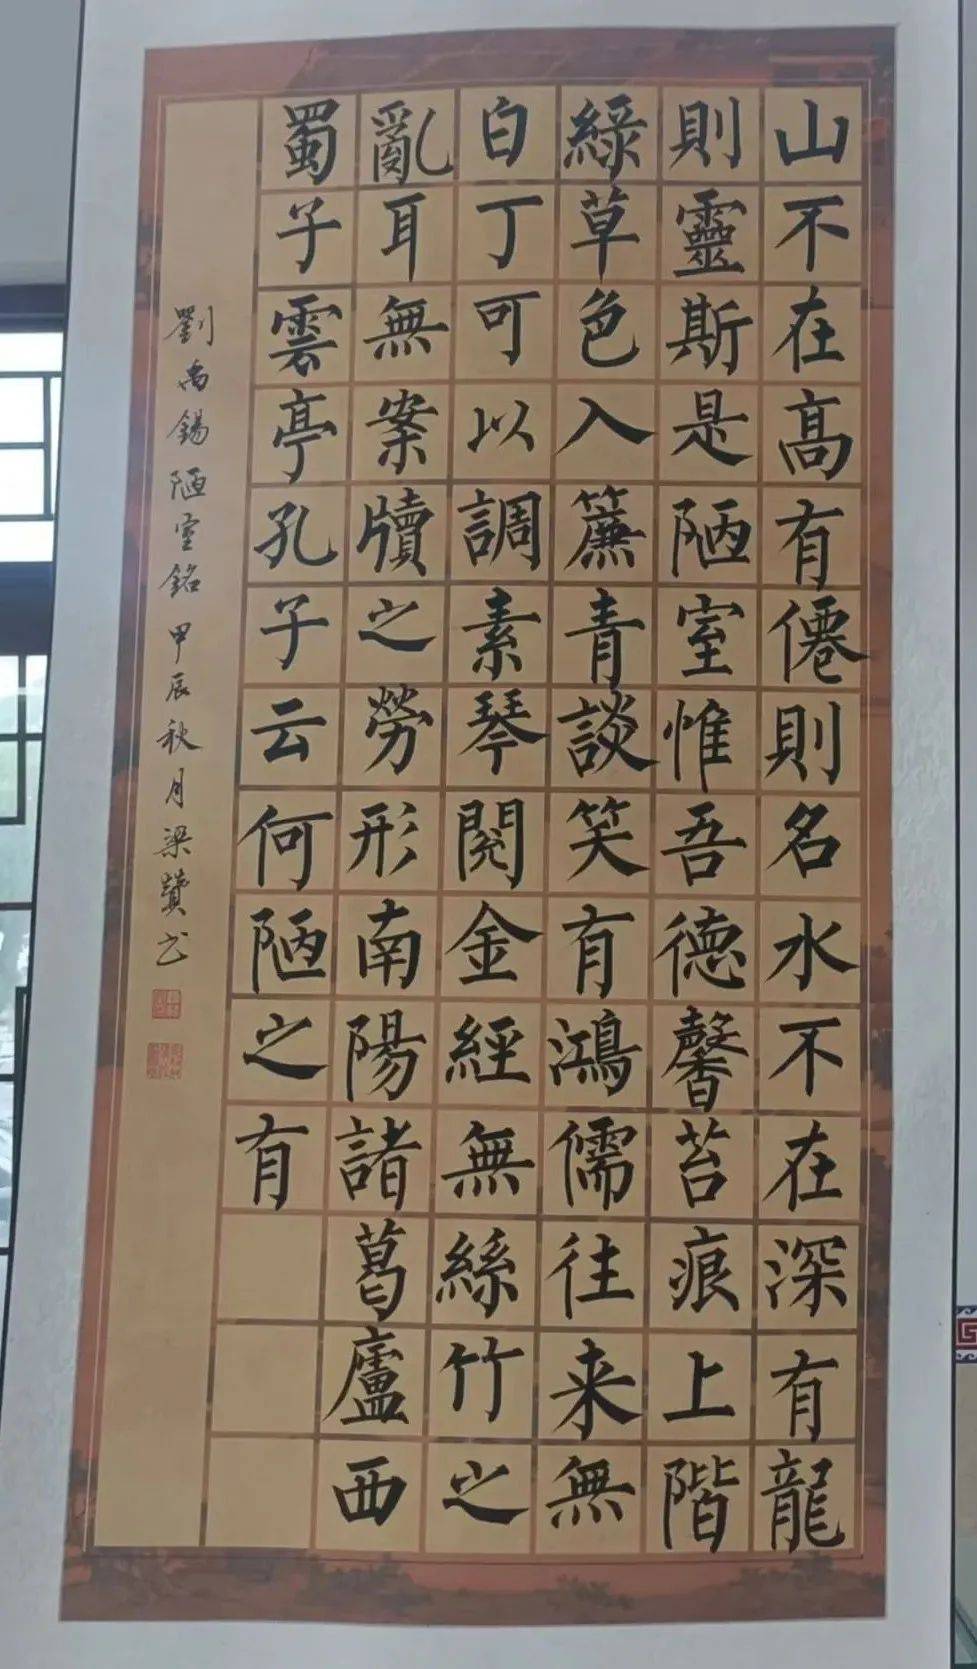 山不在高有僊則名水不在深有龍
則靈斯是陋室惟吾德馨苔痕上階
綠草色入簾青談笑有鴻儒往来無
白丁可以調素琴閱金經無絲竹之
亂耳無案牘之勞形南陽諸葛廬西
蜀子雲亭孔子云何陋之有
劉禹錫陋室銘甲辰秋月梁贊书